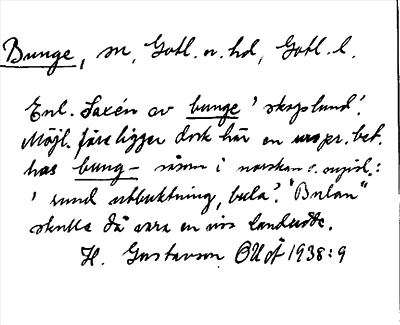 Bunge, sn, Gotl. n. hd, Gotl. l.
Enl. Saxén av bunge 'skogslund'.
Möjl. föreligger dock här en urspr. bet.
hos bung- såsom i norskan o.
'rund utbuktning, bula'. "Bulan"
skulle då vara en viss landudde.
H. Gustavson OUÅ 1938:9